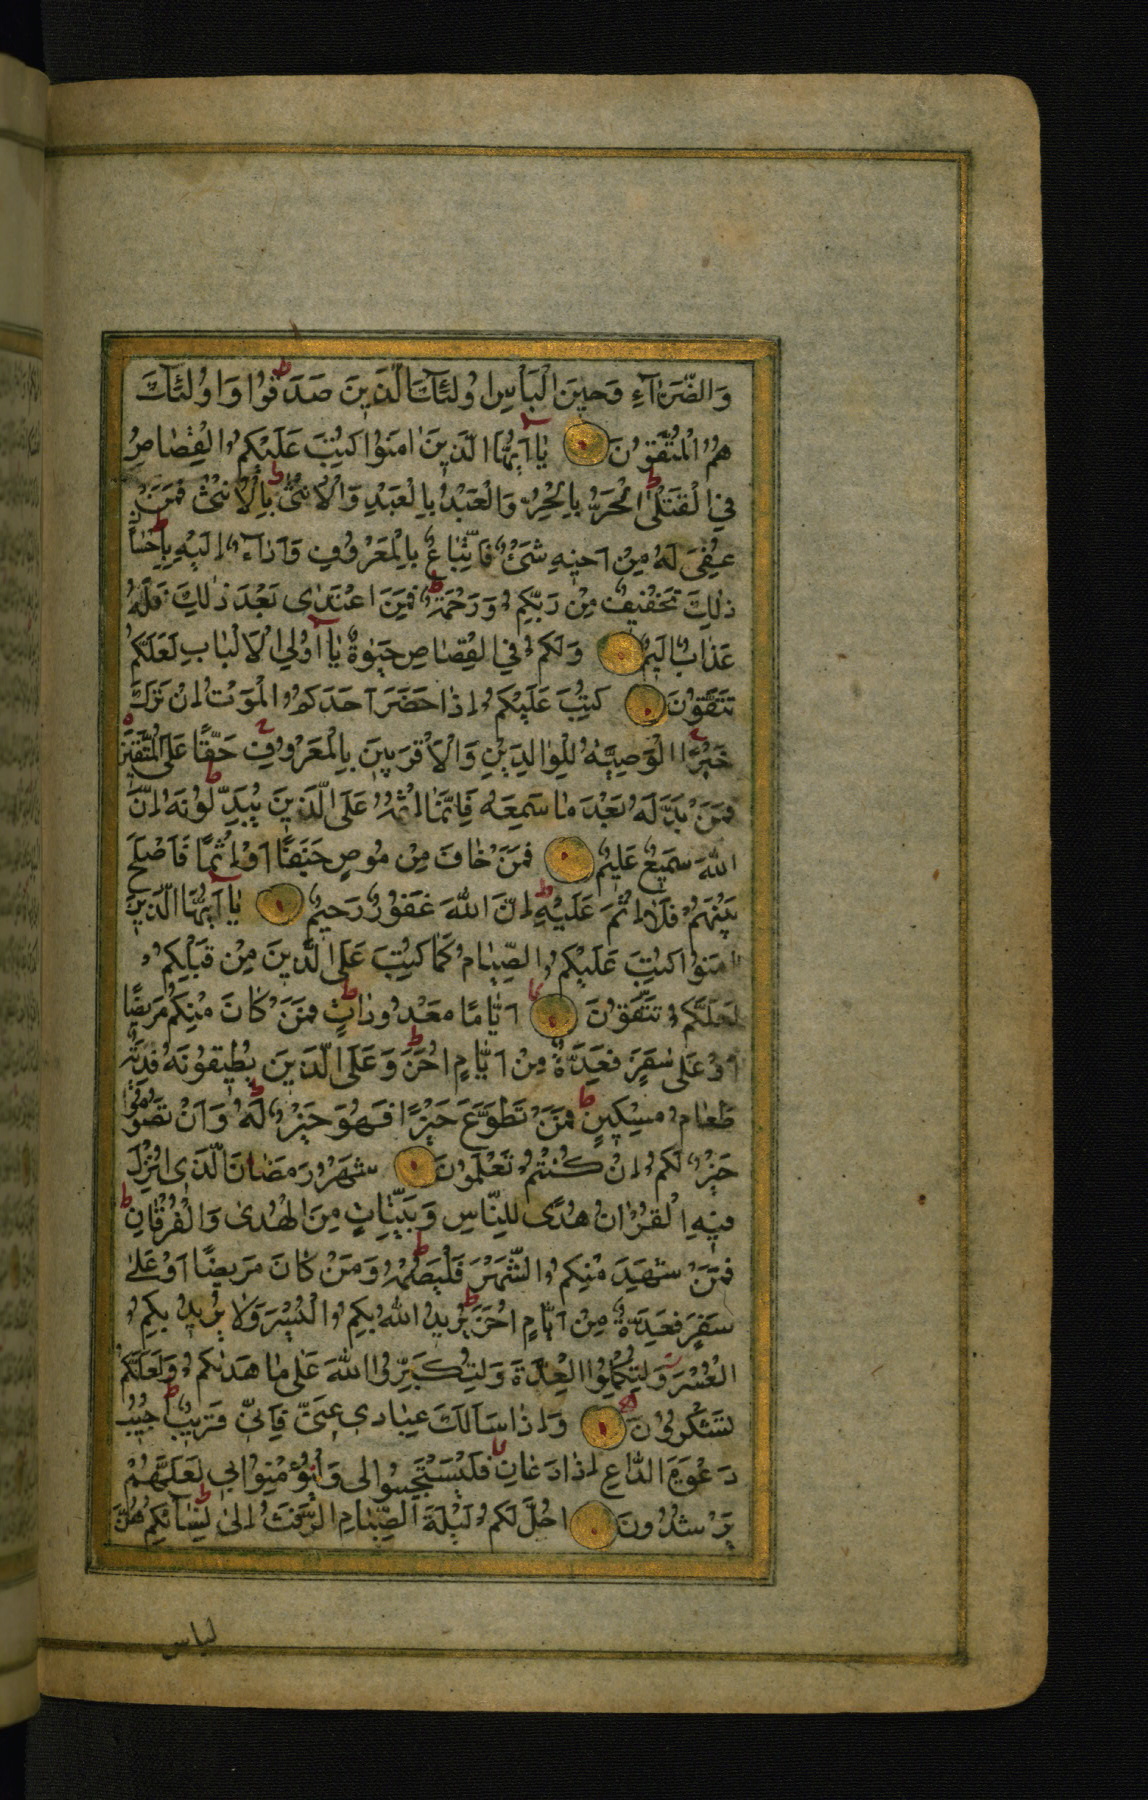 وَالضَّرَّاءِ وَحِينَ الْبَأْسِ اُولٰئِكَ الَّذِينَ صَدَقُوا وَاُولٰئِكَ
هُمُ الْمُتَّقُونَ يَا اَيُّهَا الَّذِينَ اٰمَنُوا كُتِبَ عَلَيْكُمُ الْقِصَاصُ
فِي الْقَتْلَى الْحُرُّ بِالْحُرِّ وَالْعَبْدُ بِالْعَبْدِ وَالْاُنْثٰى بِالْاُنْثٰى فَمَنْ
عُفِيَ لَهُ مِنْ اَخِيهِ شَيْءٌ فَاتِّبَاعٌ بِالْمَعْرُوفِ وَاَدَاءٌ اِلَيْهِ بِاِحْسَانٍ
ذٰلِكَ تَخْفِيفٌ مِنْ رَبِّكُمْ وَرَحْمَةٌ فَمَنِ اعْتَدٰى بَعْدَ ذٰلِكَ فَلَهُ
عَذَابٌ اَلِيمٌ وَلَكُمْ فِي الْقِصَاصِ حَيٰوةٌ يَا اُولِي الْاَلْبَابِ لَعَلَّكُمْ
تَتَّقُونَ كُتِبَ عَلَيْكُمْ اِذَا حَضَرَ اَحَدَكُمُ الْمَوْتُ اِنْ تَرَكَ
خَيْرًا الْوَصِيَّةُ لِلْوَالِدَيْنِ وَالْاَقْرَبِينَ بِالْمَعْرُوفِ حَقًّا عَلَى الْمُتَّقِينَ
فَمَنْ بَدَّلَهُ بَعْدَ مَا سَمِعَهُ فَاِنَّمَا اِثْمُهُ عَلَى الَّذِينَ يُبَدِّلُونَهُ اِنَّ
اللّٰهَ سَمِيعٌ عَلِيمٌ فَمَنْ خَافَ مِنْ مُوصٍ جَنَفًا اَوْ اِثْمًا فَاَصْلَحَ
بَيْنَهُمْ فَلَا اِثْمَ عَلَيْهِ اِنَّ اللّٰهَ غَفُورٌ رَحِيمٌ يَا اَيُّهَا الَّذِينَ
اٰمَنُوا كُتِبَ عَلَيْكُمُ الصِّيَامُ كَمَا كُتِبَ عَلَى الَّذِينَ مِنْ قَبْلِكُمْ
لَعَلَّكُمْ تَتَّقُونَ اَيَّامًا مَعْدُودَاتٍ فَمَنْ كَانَ مِنْكُمْ مَرِيضًا
اَوْ عَلٰى سَفَرٍ فَعِدَّةٌ مِنْ اَيَّامٍ اُخَرَ وَعَلَى الَّذِينَ يُطِيقُونَهُ فِدْيَةٌ
طَعَامُ مِسْكِينٍ فَمَنْ تَطَوَّعَ خَيْرًا فَهُوَ خَيْرٌ لَهُ وَاَنْ تَصُومُوا
خَيْرٌ لَكُمْ اِنْ كُنْتُمْ تَعْلَمُونَ شَهْرُ رَمَضَانَ الَّذِي اُنْزِلَ
فِيهِ الْقُرْاٰنُ هُدًى لِلنَّاسِ وَبَيِّنَاتٍ مِنَ الْهُدٰى وَالْفُرْقَانِ
فَمَنْ شَهِدَ مِنْكُمُ الشَّهْرَ فَلْيَصُمْهُ وَمَنْ كَانَ مَرِيضًا اَوْ عَلٰى
سَفَرٍ فَعِدَّةٌ مِنْ اَيَّامٍ اُخَرَ يُرِيدُ اللّٰهُ بِكُمُ الْيُسْرَ وَلَا يُرِيدُ بِكُمُ
الْعُسْرَ وَلِتُكْمِلُوا الْعِدَّةَ وَلِتُكَبِّرُوا اللّٰهَ عَلٰى مَا هَدٰيكُمْ وَلَعَلَّكُمْ
تَشْكُرُونَ وَاِذَا سَاَلَكَ عِبَادِي عَنِّي فَاِنِّي قَرِيبٌ اُجِيبُ
دَعْوَةَ الدَّاعِ اِذَا دَعَانِ فَلْيَسْتَجِيبُوا لِي وَلْيُؤْمِنُوا بِي لَعَلَّهُمْ
يَرْشُدُونَ اُحِلَّ لَكُمْ لَيْلَةَ الصِّيَامِ الرَّفَثُ اِلٰى نِسَائِكُمْ هُنَّ
لباس